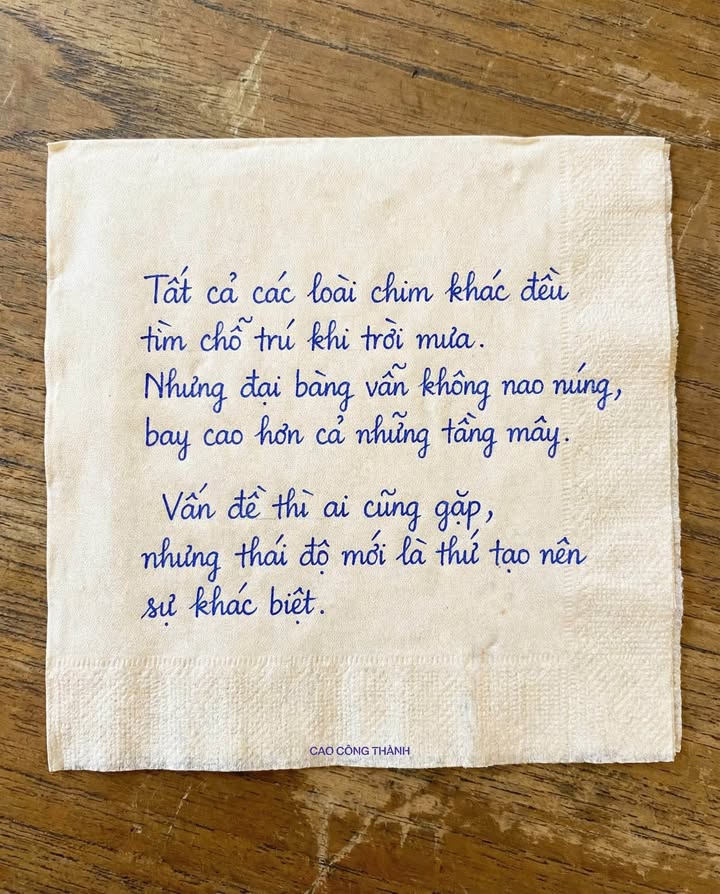 Tất cả các loài chim khác đều
tìm chỗ trú khi trời mưa.
Nhưng đại bàng vẫn không nao núng,
bay cao hơn cả những tầng mây.
Vấn đề thì ai cũng gặp,
nhưng thái độ mới là thứ tạo nên
sự khác biệt.
CAO CÔNG THÀNH